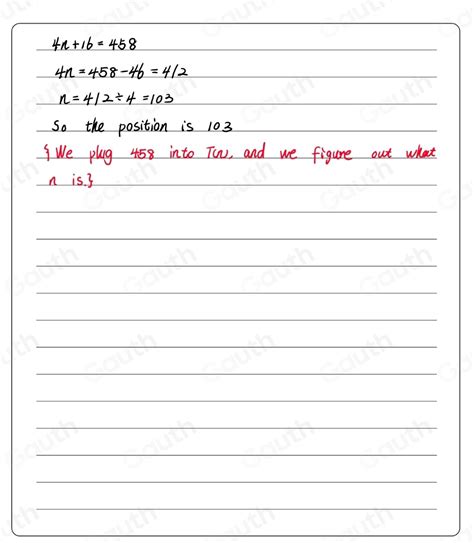 4n+16=458
4n=458-46=412
n=412÷4=103
So the position is 103
{We plug 458 into T(n), and we figure out what
n is.}